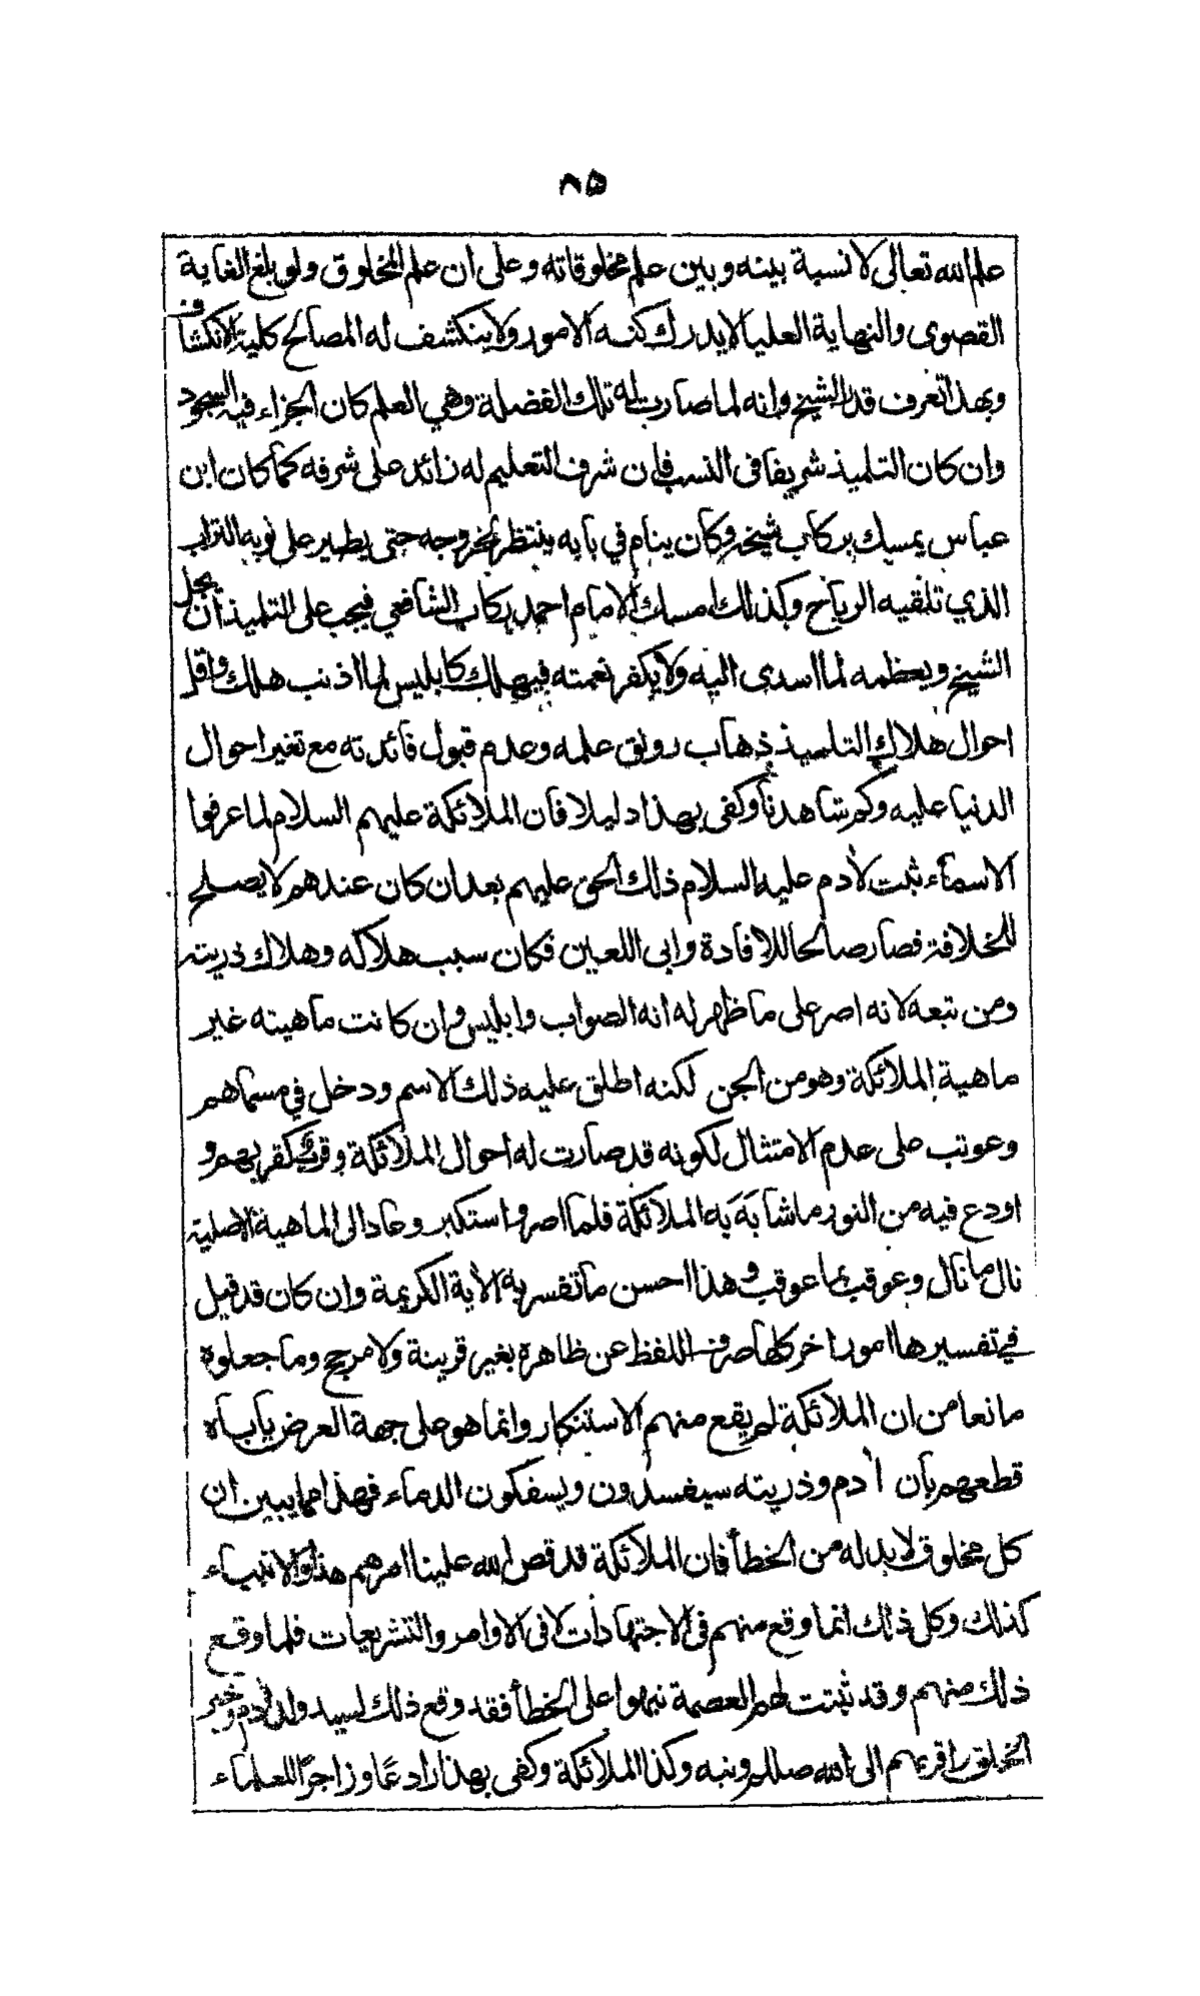 ٨٥
علم الله تعالى لا نسبة بينه وبين علم مخلوقاته وعلى ان علم المخلوق ولو بلغ الغاية
القصوى والنهاية العليا لا يدرك كنه الامور ولا ينكشف له المصالح كلية الانكشاف
وبهذا تعرف قدر الشيخ وانه لما صارت له تلك الفضيلة وهي العلم كان الجزاء فيه السجود
وان كان التلميذ شريفا في النسب فان شرف التعليم له زائد على شرفه كما كان ابن
عباس يمسك بركاب شيخه وكان ينام في بابه ينتظر خروجه حتى يطير على ثوبه التراب
الذي تلقيه الرياح وكذلك امسك الامام احمد بركاب الشافعي فيجب على التلميذ ان يجل
الشيخ ويعظمه لما اسدى اليه ولا يكفر نعمته فيهلك كابليس لما اذنب هلك واقل
احوال هلاك التلميذ ذهاب رونق علمه وعدم قبول فائدته مع تغير احوال
الدنيا عليه وكم شاهدنا وكفى بهذا دليلا فان الملائكة عليهم السلام لما عرفوا
الاسماء ثبت لادم عليه السلام ذلك الحق عليهم بعد ان كان عندهم لا يصلح
للخلافة فصار صالحا للافادة وابى اللعين فكان سبب هلاكه وهلاك ذريته
ومن تبعه لانه اصر على ما ظهر له انه الصواب وابليس وان كانت ماهيته غير
ماهية الملائكة وهو من الجن لكنه اطلق عليه ذلك الاسم ودخل في مسماهم
وعوتب على عدم الامتثال لكونه قد صارت له احوال الملائكة وقرب كقربهم و
اودع فيه من النور ما شابَهَ به الملائكة فلما اصر واستكبر وعاد الى الماهية الاصلية
نال ما نال وعوقب بما عوقب وهذا احسن ما تفسر به الأية الكريمة وان كان قد قيل
في تفسيرها امور اخر كلها صرف اللفظ عن ظاهره بغير قرينة ولا مرجح وما جعلوه
مانعا من ان الملائكة لم يقع منهم الاستنكار وانما هو على جهة العرض يأباه
قطعهم بان أدم وذريته سيفسدون ويسفكون الدماء فهذا مما يبين ان
كل مخلوق لا بد له من الخطأ فان الملائكة قد قص الله علينا امرهم هذا والانبياء
كذلك وكل ذلك انما وقع منهم في الاجتهادات لا في الاوامر والتشريعات فلما وقع
ذلك منهم وقد ثبتت لهم العصمة نبهوا على الخطأ فقد وقع ذلك لسيد ولد أدم وخير
الخلق واقربهم الى الله صللم ونبه وكذا الملائكة وكفى بهذا رادعًا وزاجرًا للعلماء